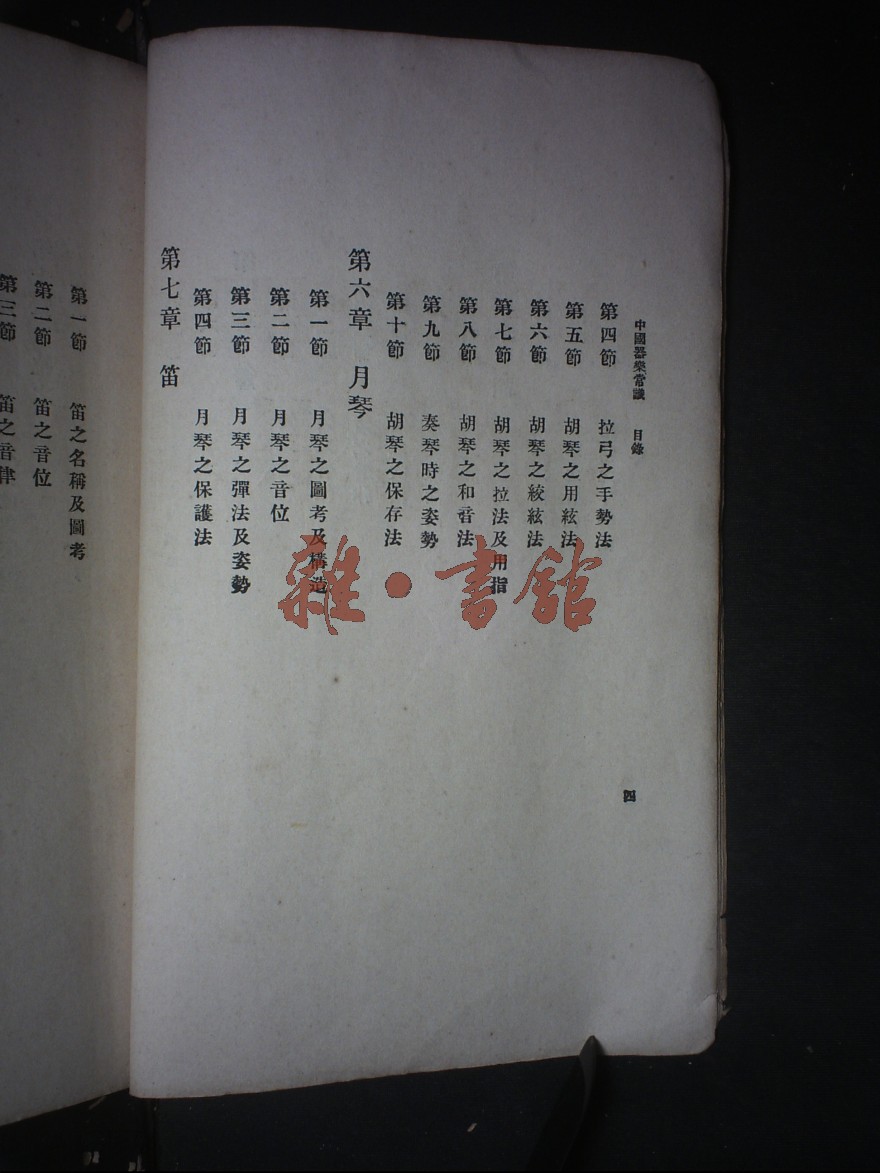 中國器樂常識　目錄
四
第四節　拉弓之手勢法
第五節　胡琴之用絃法
第六節　胡琴之絞絃法
第七節　胡琴之拉法及用指
第八節　胡琴之和音法
第九節　奏琴時之姿勢
第十節　胡琴之保存法
第六章　月琴
第一節　月琴之圖考及構造
第二節　月琴之音位
第三節　月琴之彈法及姿勢
第四節　月琴之保護法
第七章　笛
第一節　笛之名稱及圖考
第二節　笛之音位
第三節　笛之音律
雜·書館